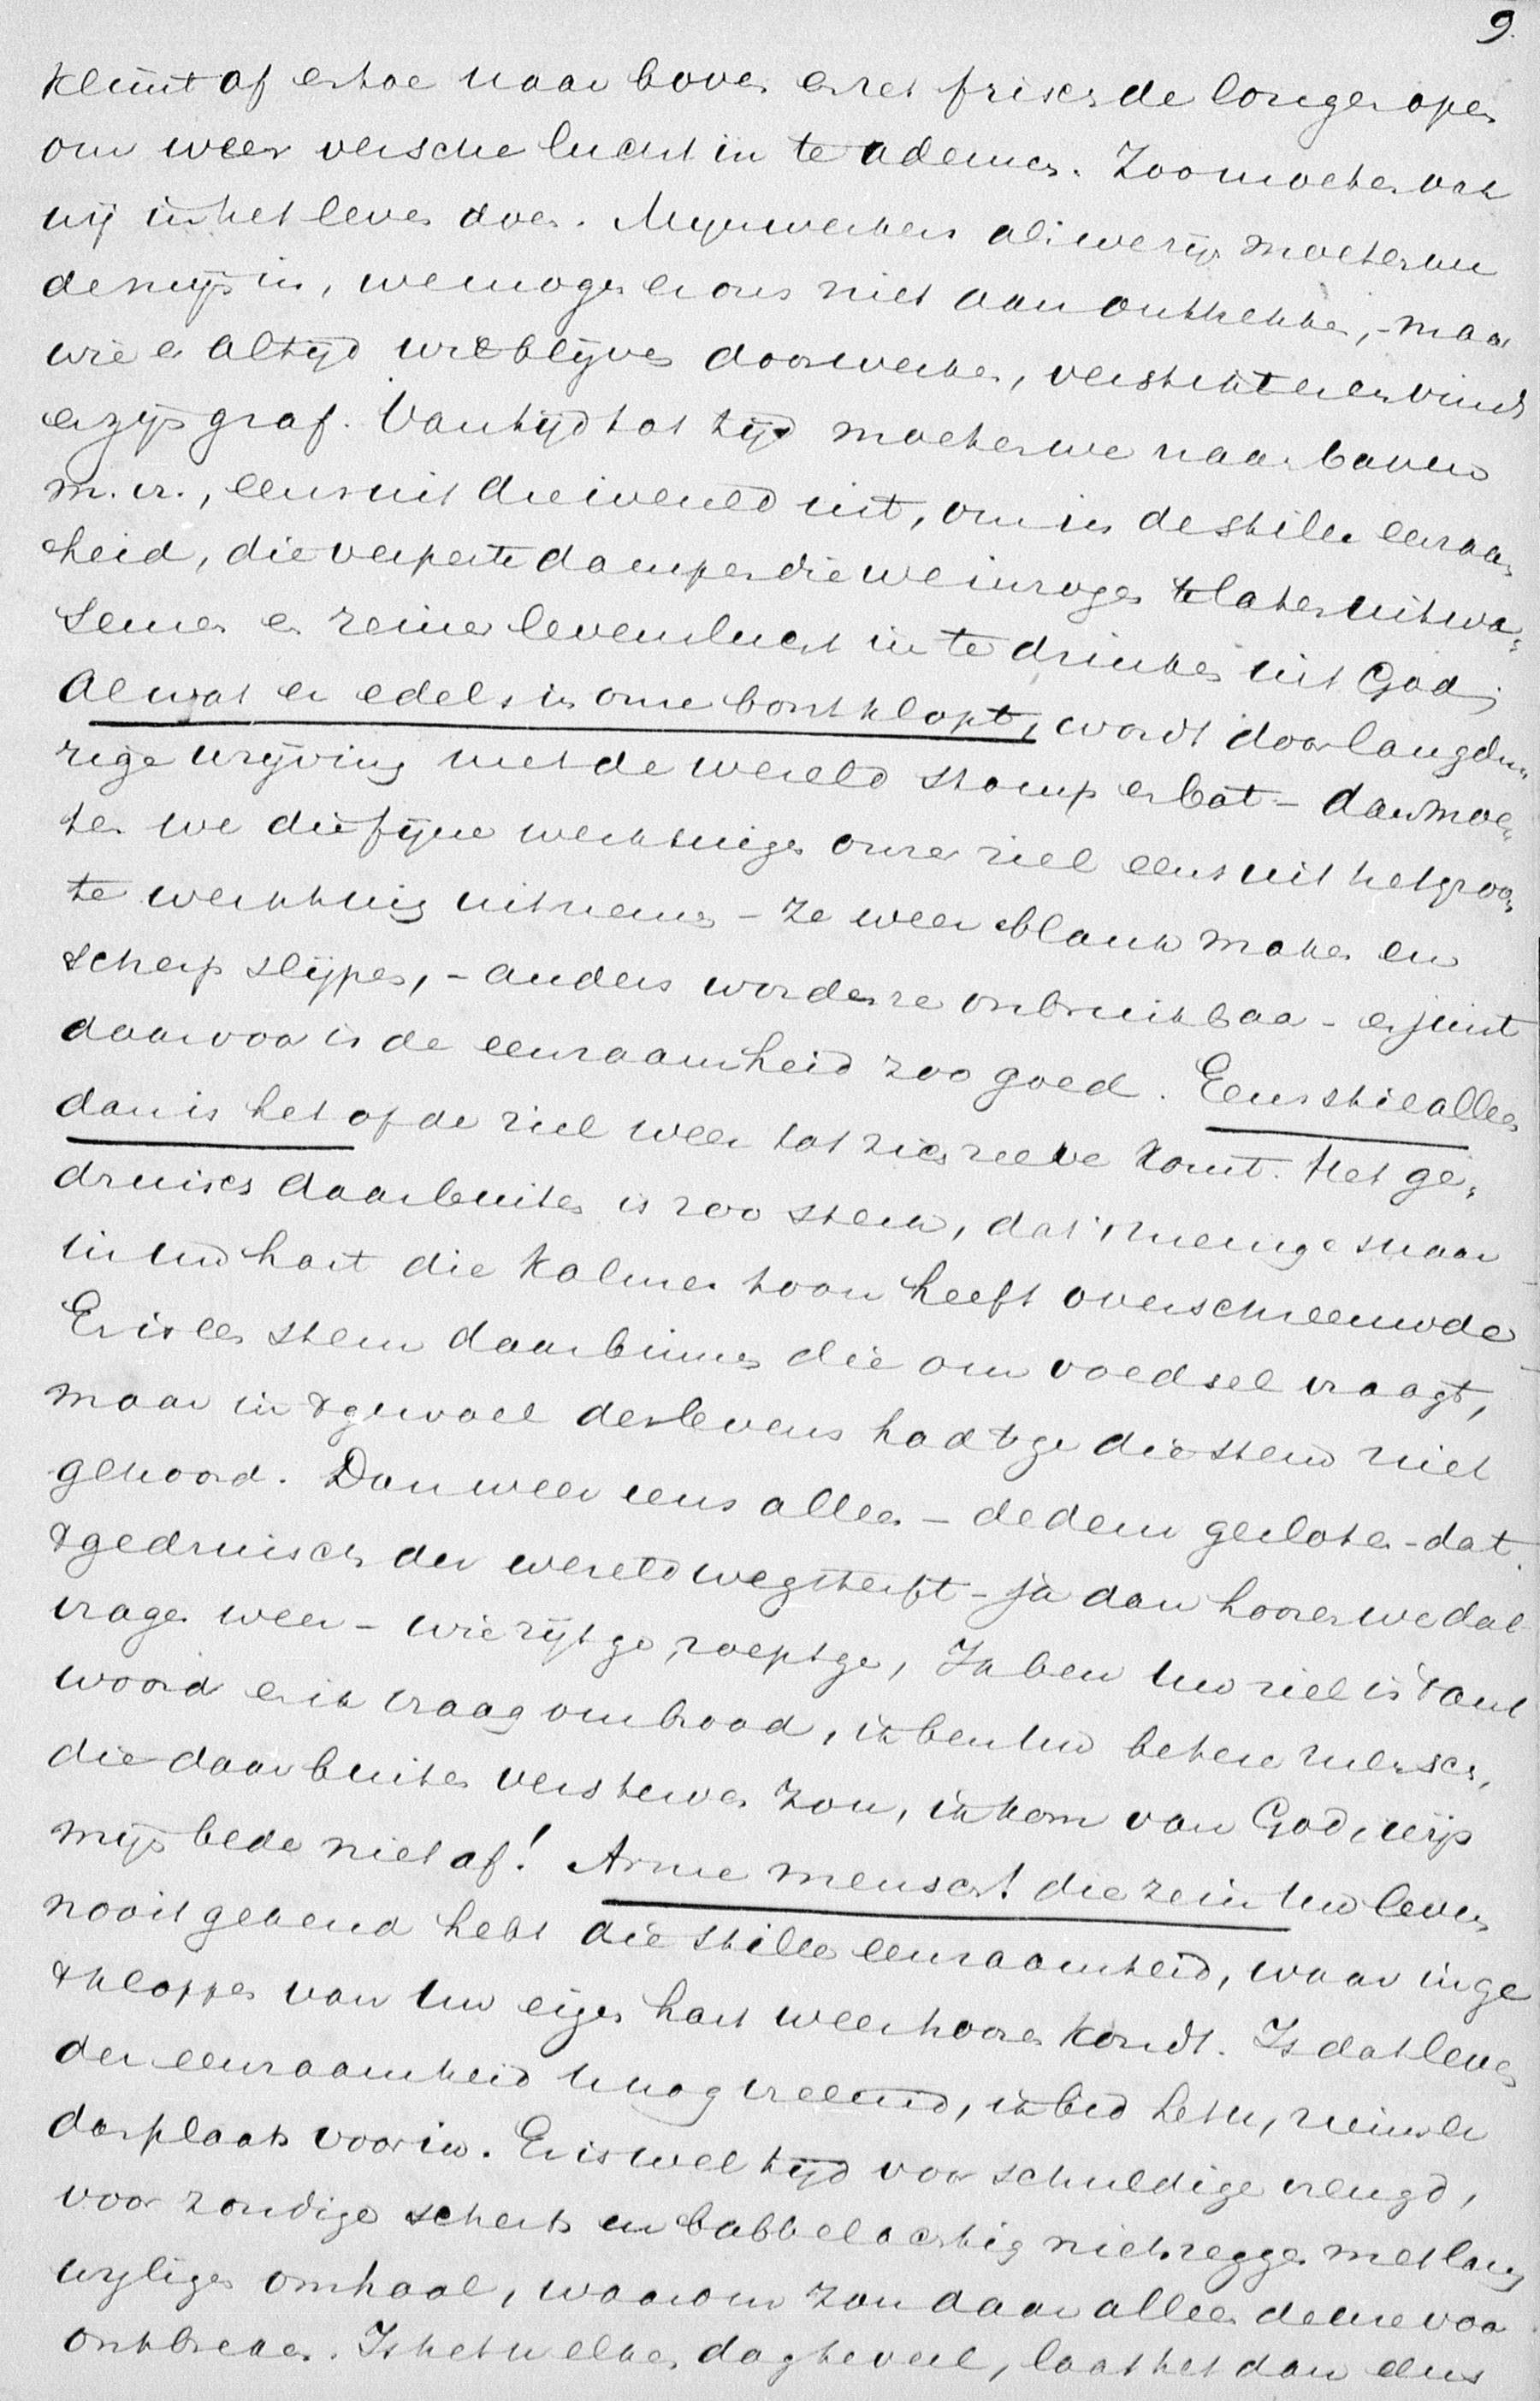 9.
klimt af en toe naar boven en zet frisch de longen open
om weer versche lucht in te ademen. Zoo moeten ook
wij in het leven doen. Mijnwerkers als we zijn moeten we
de mijn in, we mogen er ons niet aan onttrekken, - maar
wie er altijd wil blijven doorwerken, verstikt er en vindt
er zijn graf. Van tijd tot tijd moeten we naar boven
m. vr., eens uit die wereld uit, om in de stille eenzaam
heid, die verpeste dampen die we inzogen te laten uitwa-
semen en reiner levenslucht in te drinken uit God;
Al wat er edels in onze borst klopt, wordt door langdu-
rige wrijving met de wereld stomp en bot - dan moe-
ten we die fijne werktuigen onzer ziel eens uit het groo-
te werktuig uitnemen - ze weer blank maken en
scherp slijpen, - anders worden ze onbruikbaar - en juist
daarvoor is de eenzaamheid zoo goed. Eens stil alleen
dan is het of de ziel weer tot zich zelve komt. Het ge-
druisch daarbuiten is zoo sterk, dat 't menige snaar
in uw hart die kalmer toon heeft overschreeuwde
Er is een stem daarbinnen die om voedsel vraagt,
maar in 't gewoel des levens hadt ge die stem niet
gehoord. Dan weer eens alleen - de deur gesloten - dat
't gedruisch der wereld wegsterft - ja dan hooren we dat
vragen weer - wie zijt ge, roept ge, Ik ben uw ziel is 't ant
woord en ik vraag om brood, ik ben uw betere mensch,
die daarbuiten versterven zou, ik kom van God, wijs
mijn bede niet af! Arme mensch! die ze in uw leven
nooit gekend hebt die stille eenzaamheid, waarin ge
't kloppen van uw eigen hart weer hooren kondt. Is dat leven
der eenzaamheid u nog vreemd, ik bid het u, ruim er
dan plaats voor in. Er is wel tijd voor schuldige vreugd,
voor zondige scherts en babbelachtig nietszeggen met lang
wijligen omhaal, waarom zou daar alleen de ure voor
ontbreken. Is het u elken dag te veel, laat het dan eens